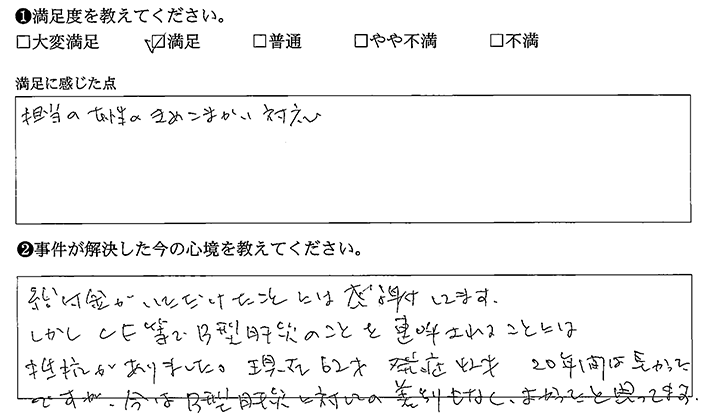 ❶満足度を教えてください。
□大変満足 ☑満足 □普通 □やや不満 □不満
満足に感じた点
担当の女性のきめこまかい対応
❷事件が解決した今の心境を教えてください。
給付金がいただけたことには感謝してます。
しかしCF等でB型肝炎のことを連呼されることには
抵抗がありました。現在62才 発症42才 20年間は長かった
ですが、今はB型肝炎に対しての差別もなし、よかったと思ってます。